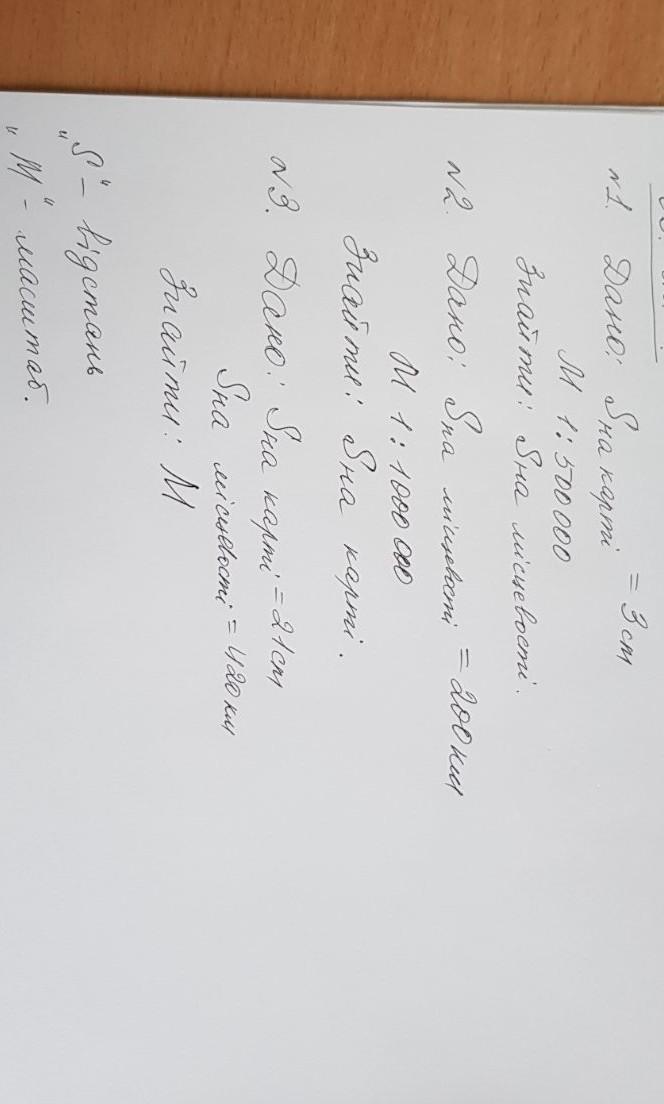 №1. Дано: S на карті = 3 см
М 1 : 500 000
Знайти: S на місцевості.
№2. Дано: S на місцевості = 200 км
М 1 : 1000 000
Знайти: S на карті.
№3. Дано: S на карті = 21 см
S на місцевості = 420 км
Знайти: М
„S“ – відстань
„М“ – масштаб.